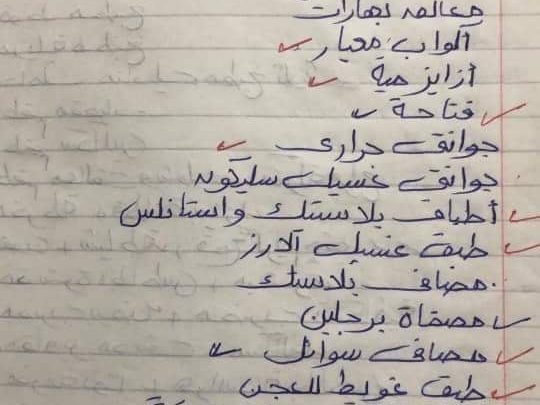 معالق بهارات
أكواب معيار
أزايز مية
فتاحة
جوانتى حرارى
جوانتى غسيل سليكون
أطباق بلاستك واستانلس
طبق غسيل الارز
مصافى بلاستك
مصفاة برجلين
مصافى سوائل
طبق غويط للعجن